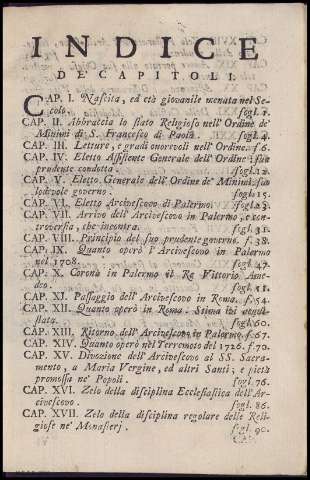 INDICE
DE' CAPITOLI.
CAP. I. Nascita, ed età giovanile menata nel Se-
colo. fogl. 1.
CAP. II. Abbraccia lo stato Religioso nell' Ordine de'
Minimi di S. Francesco di Paola. fogl. 4.
CAP. III. Letture, e gradi onorevoli nell' Ordine. f. 6.
CAP. IV. Eletto Assistente Generale dell' Ordine: sua
prudente condotta. fogl. 12.
CAP. V. Eletto Generale dell' Ordine de' Minimi. suo
lodevole governo. fogl. 15.
CAP. VI. Eletto Arcivescovo di Palermo. fogl. 23.
CAP. VII. Arrivo dell' Arcivescovo in Palermo, e con-
troversia, che incontra. fogl. 31.
CAP. VIII. Principio del suo prudente governo. f. 38.
CAP. IX. Quanto operò l' Arcivescovo in Palermo
nel 1708. fogl. 47.
CAP. X. Coronò in Palermo il Rè Vittorio Ame-
deo. fogl. 51.
CAP. XI. Passaggio dell' Arcivescovo in Roma. f. 54.
CAP. XII. Quanto operò in Roma. Stima ivi acqui-
stata. fogl. 60.
CAP. XIII. Ritorno dell' Arcivescovo in Palermo. f. 67.
CAP. XIV. Quanto operò nel Terremoto del 1726. f. 70.
CAP. XV. Divozione dell' Arcivescovo al SS. Sacra-
mento, a Maria Vergine, ed altri Santi; e pietà
promossa ne' Popoli. fogl. 76.
CAP. XVI. Zelo della disciplina Ecclesiastica dell' Ar-
civescovo. fogl. 86.
CAP. XVII. Zelo della disciplina regolare delle Reli-
giose ne' Monasterj. fogl. 90.
CAP.